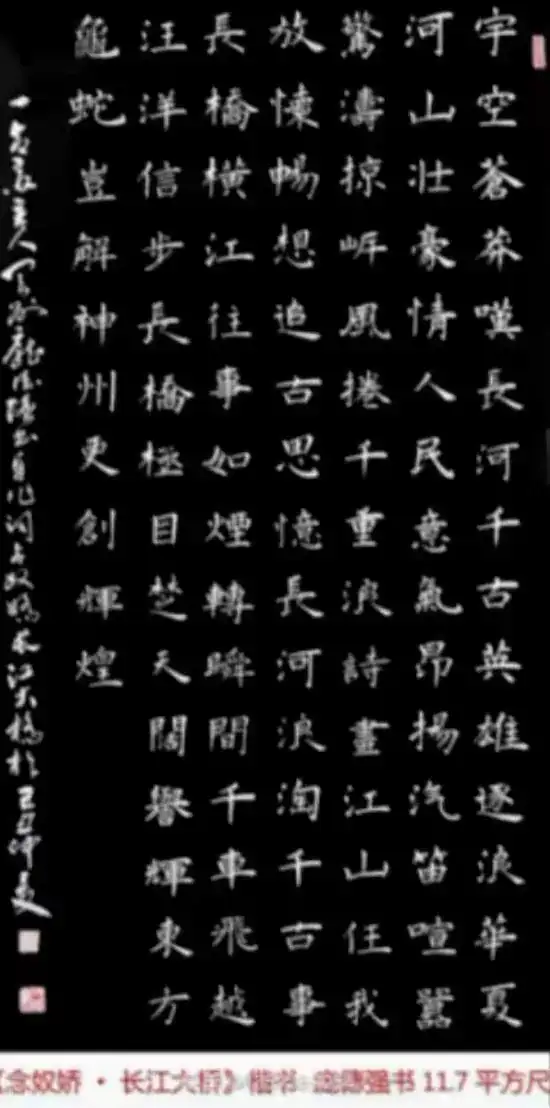 宇空蒼莽嘆長河千古英雄逐浪華夏
河山壯豪情人民意氣昂揚汽笛喧囂
驚濤掠岸風捲千重浪詩畫江山任我
放懷暢想追古思憶長河浪淘千古事
長橋橫江往事如煙轉瞬間千車飛越
汪洋信步長橋極目楚天闊譽輝東方
龜蛇豈解神州更創輝煌
主人 書自作詞念奴嬌長江大橋於己丑仲夏
《念奴娇·长江大桥》楷书 庞德强书 11.7平方尺